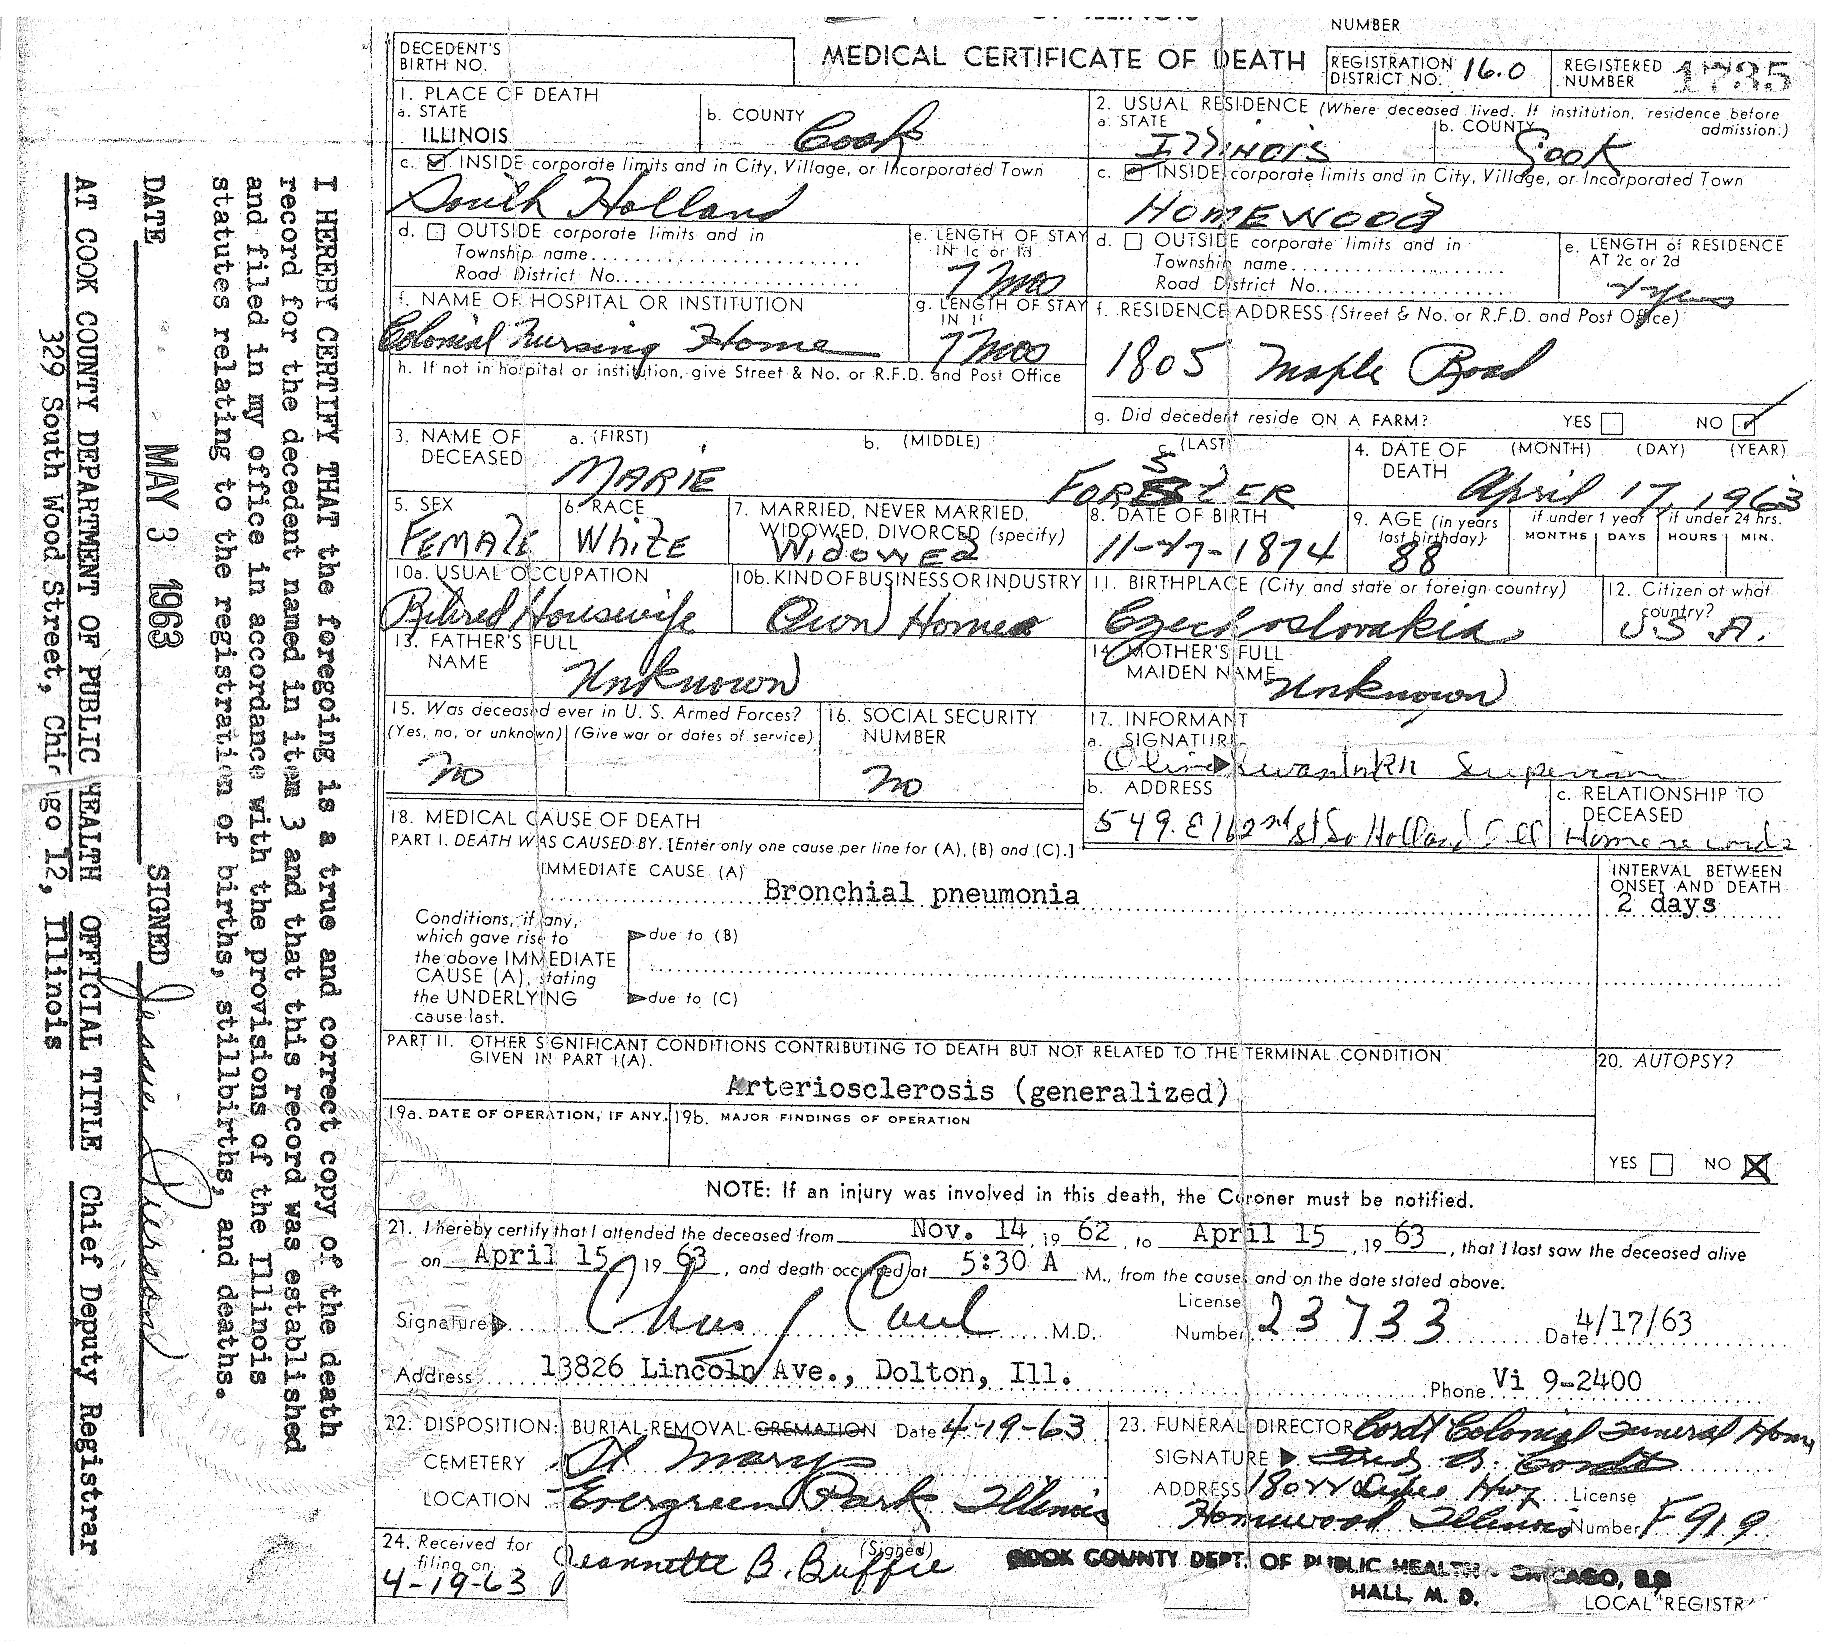 NUMBER
DECEDENT'S
BIRTH NO.
MEDICAL CERTIFICATE OF DEATH
REGISTRATION
DISTRICT NO. 16.0
REGISTERED
NUMBER 1735
1. PLACE OF DEATH
a. STATE
ILLINOIS
b. COUNTY
Cook
2. USUAL RESIDENCE (Where deceased lived. If institution, residence before admission.)
a. STATE
ILLINOIS
b. COUNTY
Cook
c. INSIDE corporate limits and in City, Village, or Incorporated Town
South Holland
c. INSIDE corporate limits and in City, Village, or Incorporated Town
HOMEWOOD
d. OUTSIDE corporate limits and in
Township name
Road District No.
e. LENGTH OF STAY
IN 1c or 1d
7 mos
d. OUTSIDE corporate limits and in
Township name
Road District No.
e. LENGTH of RESIDENCE
AT 2c or 2d
yrs
f. NAME OF HOSPITAL OR INSTITUTION
Colonial Nursing Home
g. LENGTH OF STAY
IN 1f
7 mos
f. RESIDENCE ADDRESS (Street & No. or R.F.D. and Post Office)
1805 Maple Road
h. If not in hospital or institution, give Street & No. or R.F.D. and Post Office
g. Did decedent reside ON A FARM?
YES NO
3. NAME OF
DECEASED
a. (FIRST)
MARIE
b. (MIDDLE)
(LAST)
FORSTER
4. DATE OF
DEATH
(MONTH) (DAY) (YEAR)
April 17, 1963
5. SEX
FEMALE
6. RACE
WHITE
7. MARRIED, NEVER MARRIED,
WIDOWED, DIVORCED (specify)
WIDOWED
8. DATE OF BIRTH
11-27-1874
9. AGE (in years
last birthday)
88
if under 1 year
MONTHS DAYS
if under 24 hrs.
HOURS MIN.
10a. USUAL OCCUPATION
Retired Housewife
10b. KIND OF BUSINESS OR INDUSTRY
Own Home
11. BIRTHPLACE (City and state or foreign country)
Czechoslovakia
12. Citizen of what
country?
U S A.
13. FATHER'S FULL
NAME
Unknown
14. MOTHER'S FULL
MAIDEN NAME
Unknown
15. Was deceased ever in U. S. Armed Forces?
(Yes, no, or unknown) (Give war or dates of service)
no
16. SOCIAL SECURITY
NUMBER
no
17. INFORMANT
a. SIGNATURE
b. ADDRESS
549 E 162nd St So Holland Ill
c. RELATIONSHIP TO
DECEASED
Home records
18. MEDICAL CAUSE OF DEATH
PART I. DEATH WAS CAUSED BY. [Enter only one cause per line for (A), (B) and (C).]
IMMEDIATE CAUSE (A)
Bronchial pneumonia
INTERVAL BETWEEN
ONSET AND DEATH
2 days
Conditions, if any,
which gave rise to
the above IMMEDIATE
CAUSE (A), stating
the UNDERLYING
cause last.
due to (B)
due to (C)
PART II. OTHER SIGNIFICANT CONDITIONS CONTRIBUTING TO DEATH BUT NOT RELATED TO THE TERMINAL CONDITION
GIVEN IN PART I(A).
Arteriosclerosis (generalized)
20. AUTOPSY?
YES NO
19a. DATE OF OPERATION, IF ANY.
19b. MAJOR FINDINGS OF OPERATION
NOTE: If an injury was involved in this death, the Coroner must be notified.
21. I hereby certify that I attended the deceased from Nov. 14, 19 62, to April 15, 19 63, that I last saw the deceased alive
on April 15, 19 63, and death occurred at 5:30 A M., from the causes and on the date stated above.
Signature M.D.
License
Number 23733
Date 4/17/63
Address 13826 Lincoln Ave., Dolton, Ill.
Phone Vi 9-2400
22. DISPOSITION: BURIAL-REMOVAL-CREMATION Date 4-19-63
CEMETERY St Marys
LOCATION Evergreen Park Illinois
23. FUNERAL DIRECTOR Cordt Colonial Funeral Home
SIGNATURE
ADDRESS 18022 Dixie Hwy
Homewood Illinois
License
Number F919
24. Received for
filing on
4-19-63
(Signed)
Jeannette B. Buffie
COOK COUNTY DEPT. OF PUBLIC HEALTH - CHICAGO,
HALL, M. D.
LOCAL REGISTR
I HEREBY CERTIFY THAT the foregoing is a true and correct copy of the death
record for the decedent named in item 3 and that this record was established
and filed in my office in accordance with the provisions of the Illinois
statutes relating to the registration of births, stillbirths, and deaths.
DATE MAY 3 1963 SIGNED Jessie Pierson
AT COOK COUNTY DEPARTMENT OF PUBLIC HEALTH OFFICIAL TITLE Chief Deputy Registrar
329 South Wood Street, Chicago 12, Illinois